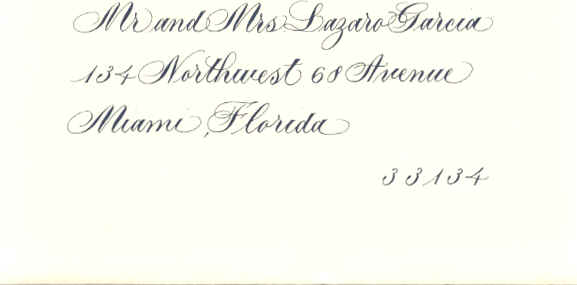 Mr and Mrs Lazaro Garcia
134 Northwest 68 Avenue
Miami, Florida
33134